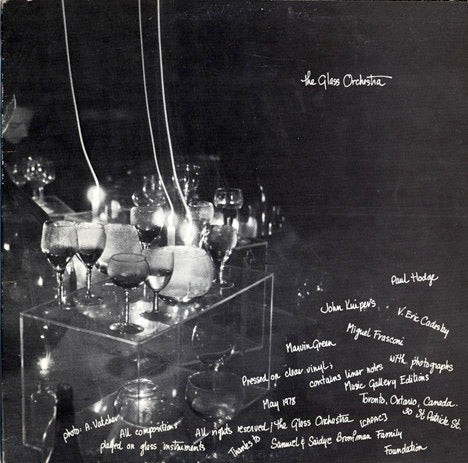 the Glass Orchestra
Paul Hodge
John Kuipers
V. Eric Cadesky
Miguel Frasconi
Marvin Green
with photographs
contains liner notes
Pressed on clear vinyl;
Music Gallery Editions
30 St. Patrick St.
Toronto, Ontario, Canada
May 1978
[CAPAC]
All rights reserved / the Glass Orchestra
photo: A. Vatcher
All compositions
played on glass instruments
Thanks to
Samuel & Saidye Bronfman Family
Foundation